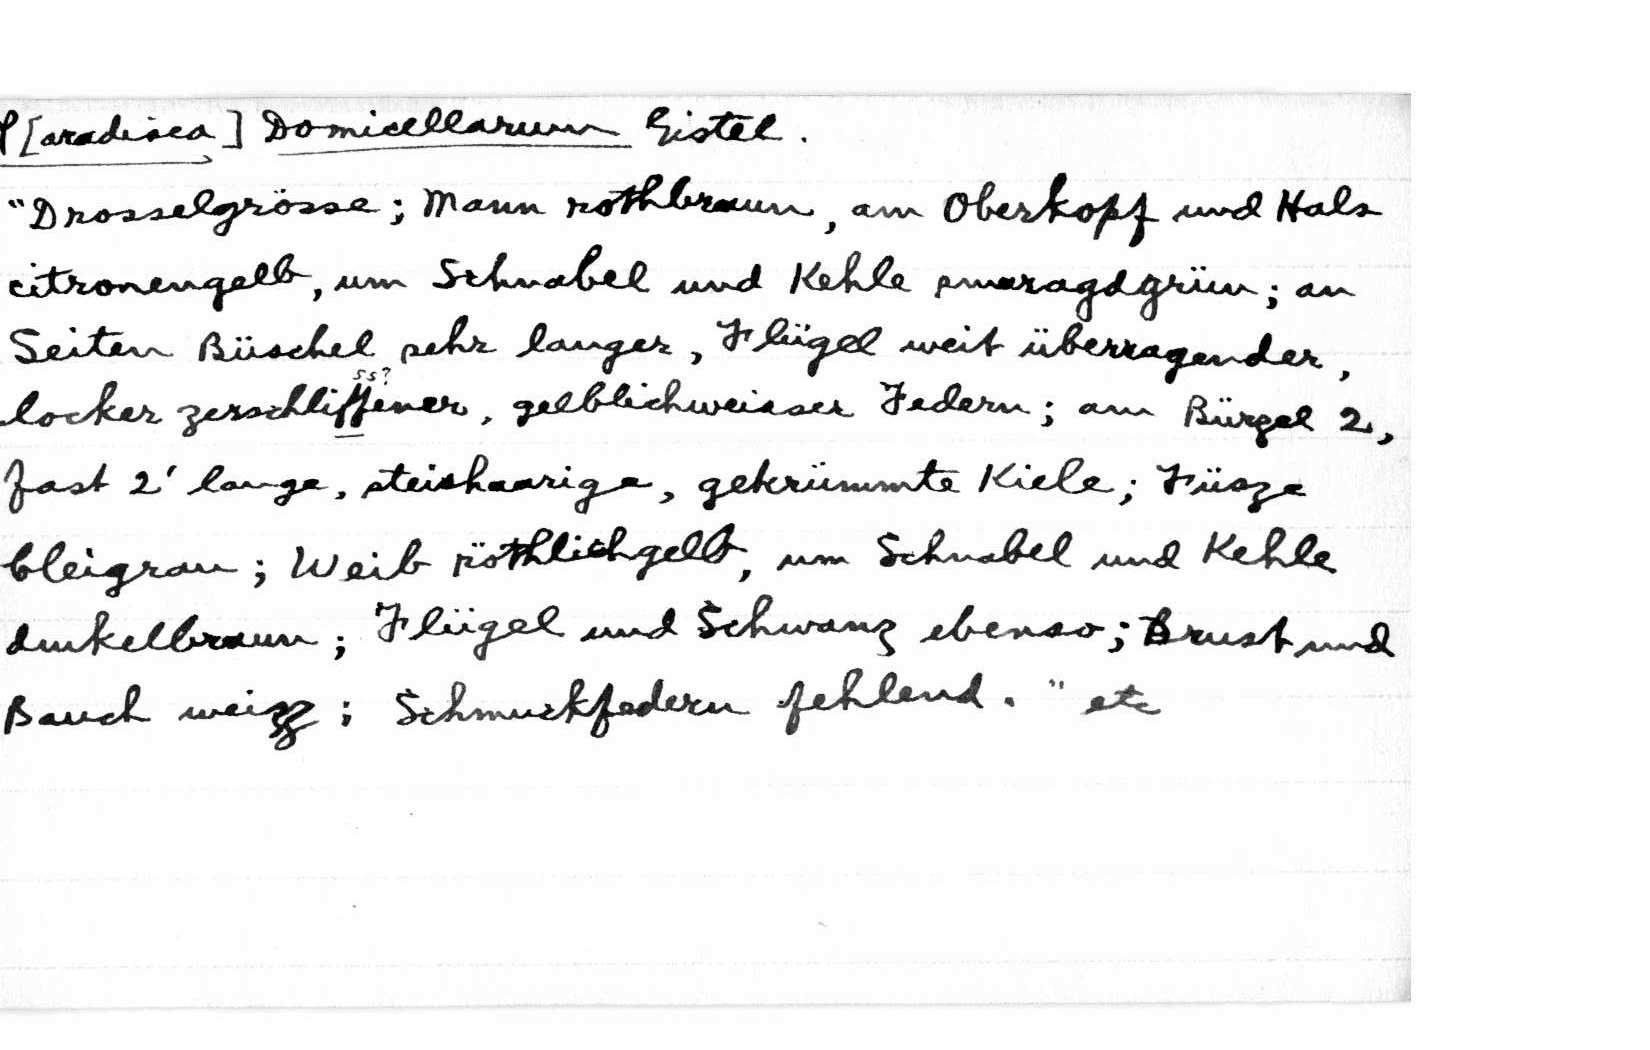 P[aradisea] Domicellarum Gistel.
"Drosselgrösse; Mann rothbraun, am Oberkopf und Hals
citronengelb, um Schnabel und Kehle smaragdgrün; an
Seiten Büschel sehr langer, Flügel weit überragender,
ss?
locker zerschliffener, gelblichweisser Federn; am Bürzel 2,
fast 2' lange, steishaarige, gekrümmte Kiele; Füsze
bleigrau; Weib röthlichgelb, um Schnabel und Kehle
dunkelbraun; Flügel und Schwanz ebenso; Brust und
Bauch weisz; Schmuckfedern fehlend." etc